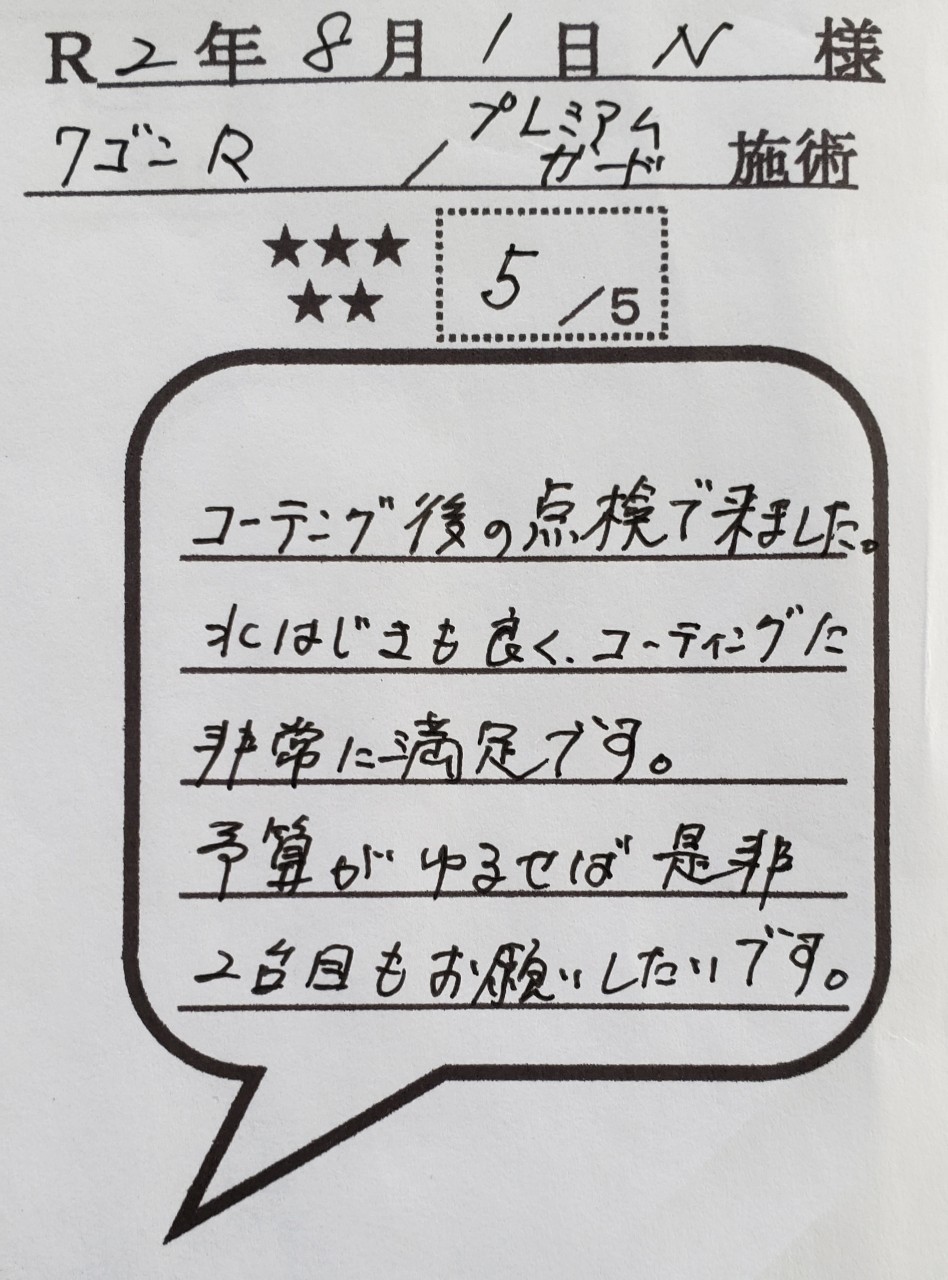 R2年8月1日 N 様
ワゴンR / プレミアムガード 施術
★★★
★★
5/5
コーテング後の点検で来ました。
水はじきも良く、コーティングに
非常に満足です。
予算がゆるせば是非
2台目もお願いしたいです。